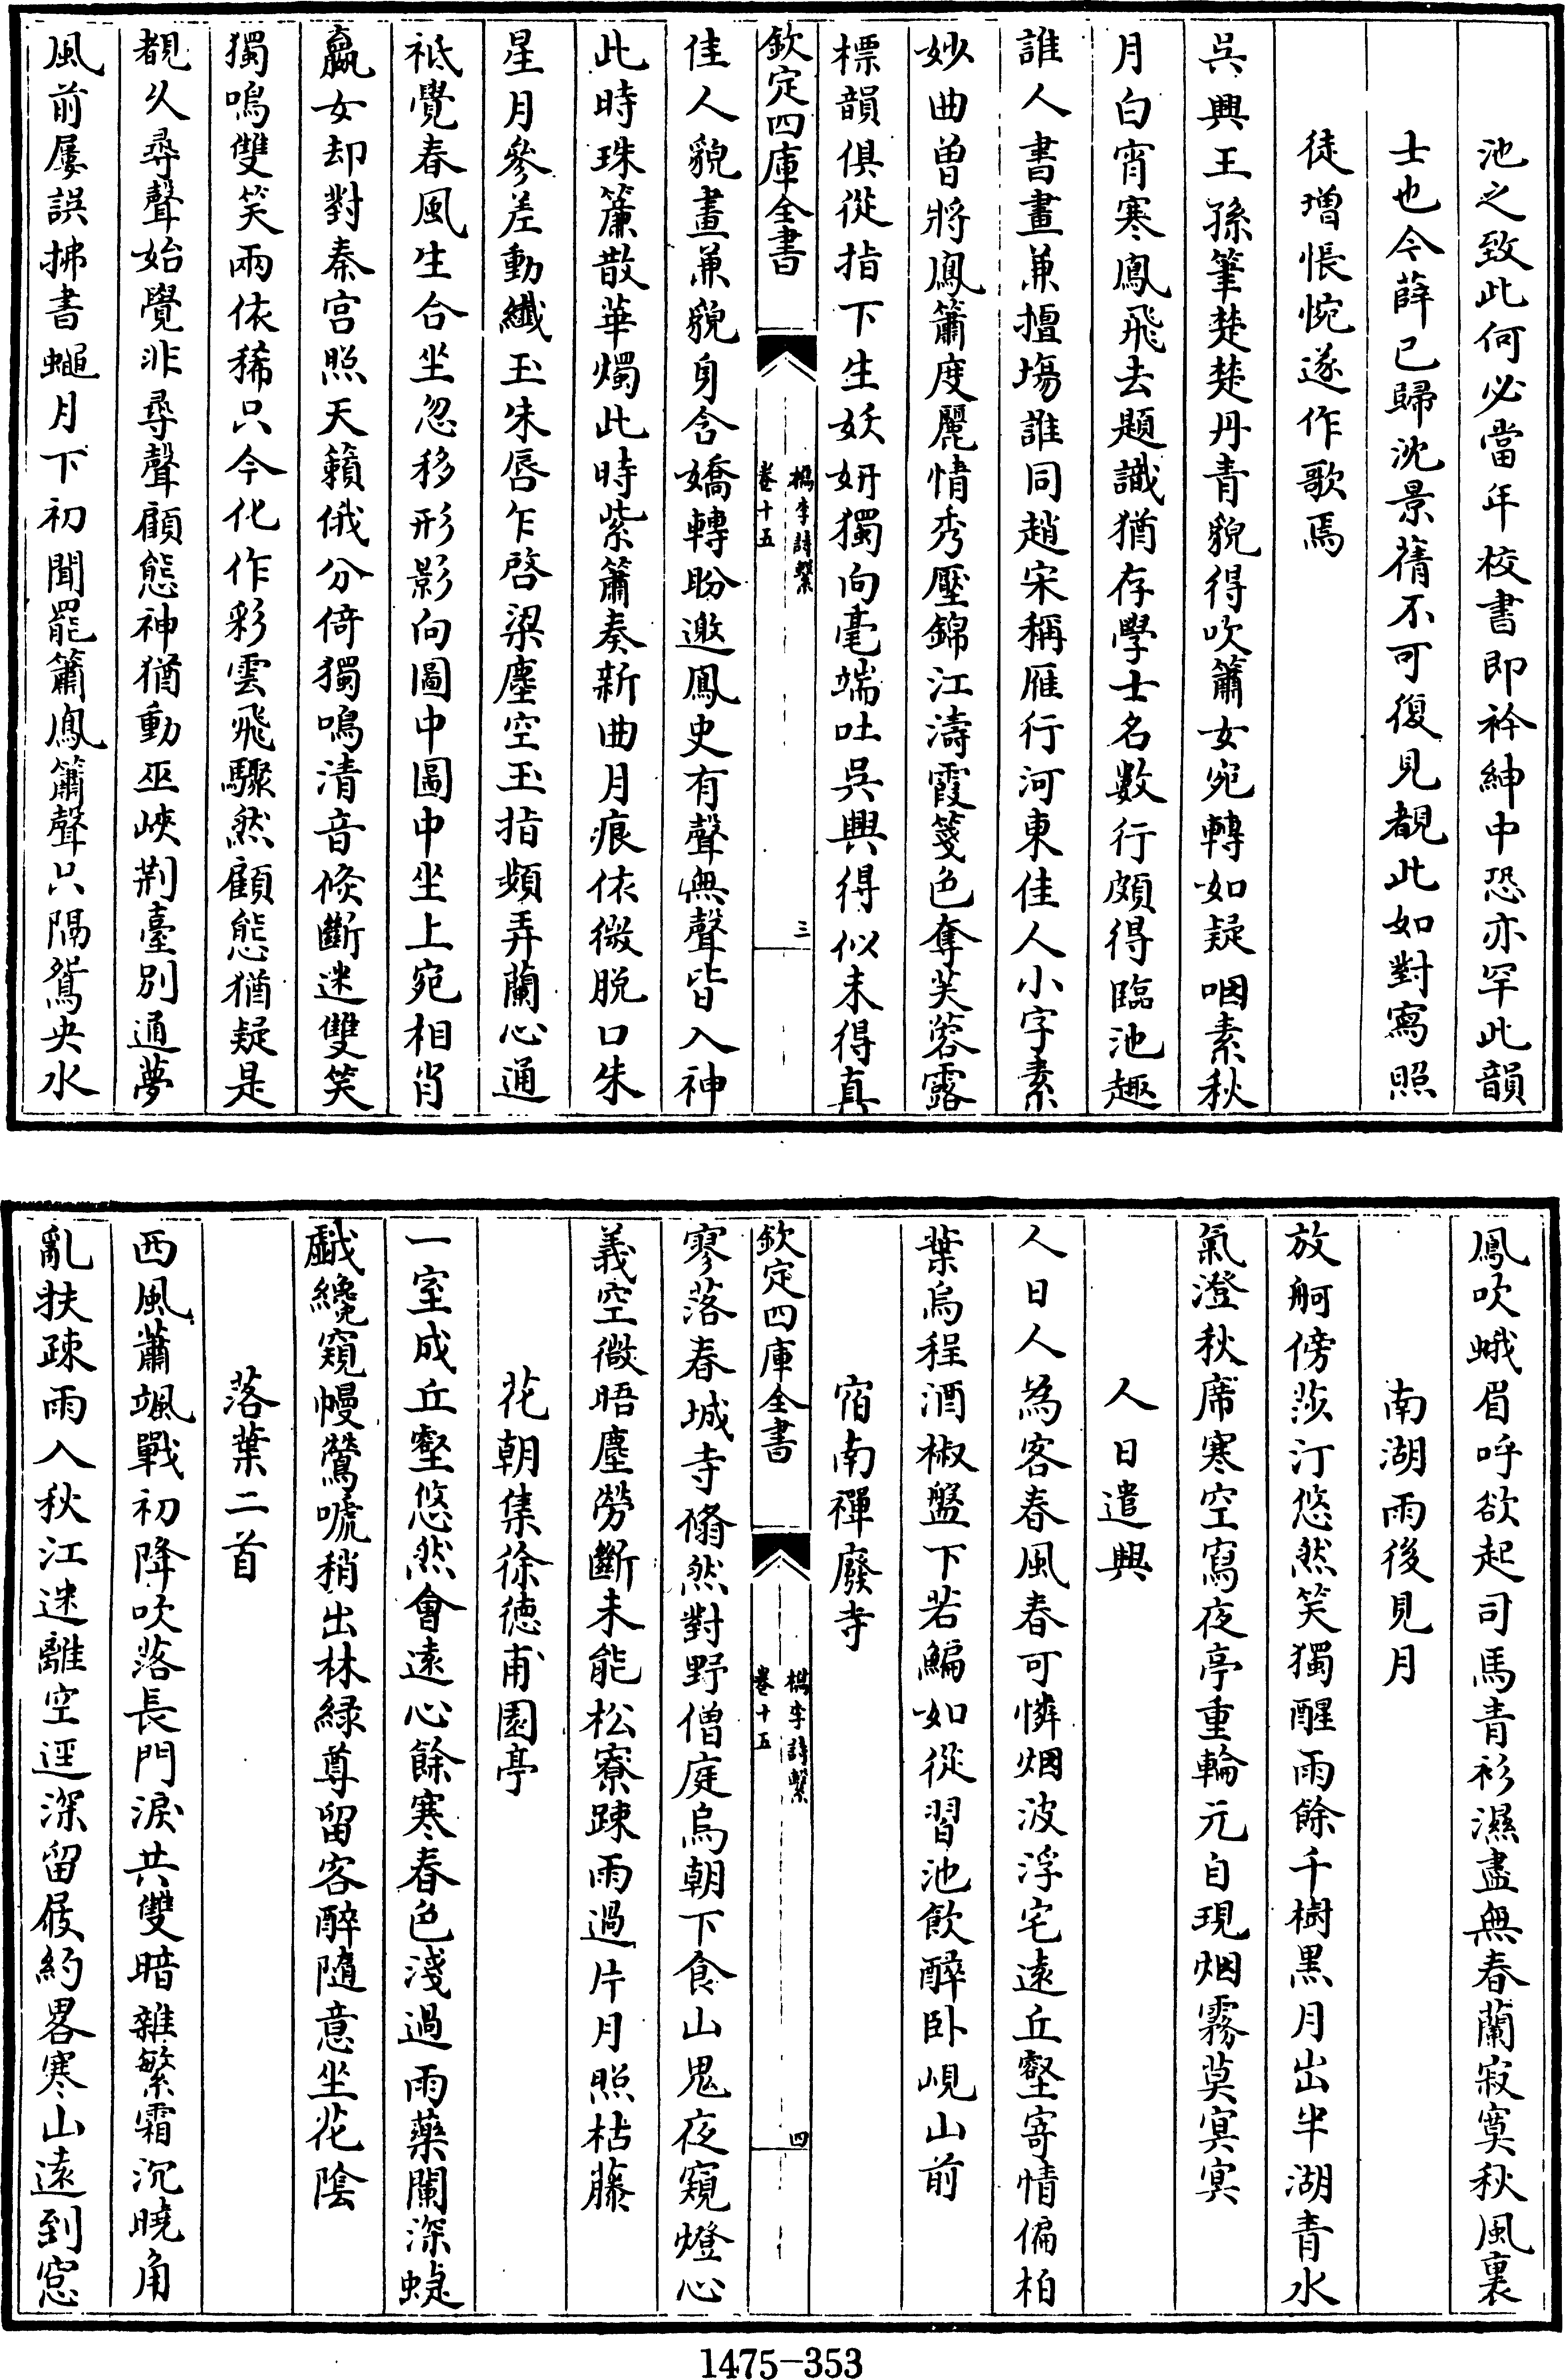 池之致此何必當年校書即衿紳中恐亦罕此韻
士也今薛已歸沈景蒨不可復見覩此如對寫照
徒增悵惋遂作歌焉
吳興王孫筆楚楚丹青貌得吹簫女宛轉如疑咽素秋
月白宵寒鳳飛去題識猶存學士名數行頗得臨池趣
誰人書畫兼擅塲誰同趙宋稱雁行河東佳人小字素
妙曲曽將鳳簫度麗情秀壓錦江濤霞箋色奪芙蓉露
標韻俱從指下生妖妍獨向毫端吐吳興得似未得真
欽定四庫全書
檇李詩繫
卷十五
三
佳人貌畫兼貌身含嬌轉盼邀鳳史有聲無聲皆入神
此時珠簾散華燭此時紫簫奏新曲月痕依微脫口朱
星月參差動纖玉朱唇乍啓梁塵空玉指頻弄蘭心通
袛覺春風生合坐忽移形影向圖中圖中坐上宛相肖
嬴女却對秦宫照天籟俄分倚獨鳴清音倐斷迷雙笑
獨鳴雙笑兩依稀只今化作彩雲飛驟然顧態猶疑是
覩乆尋聲始覺非尋聲顧態神猶動巫峽荆臺别通夢
風前屢誤拂書蠅月下初聞罷簫鳳簫聲只隔鴛央水
鳳吹蛾眉呼欲起司馬青衫濕盡無春蘭寂寞秋風裏
南湖雨後見月
放舸傍莎汀悠然笑獨醒雨餘千樹黒月出半湖青水
氣澄秋席寒空寫夜亭重輪元自現烟霧莫冥冥
人日遣興
人日人為客春風春可憐烟波浮宅遠丘壑寄情偏柏
葉烏程酒椒盤下若鯿如從習池飲醉卧峴山前
宿南禪廢寺
欽定四庫全書
檇李詩繫
卷十五
四
寥落春城寺翛然對野僧庭烏朝下食山鬼夜窺燈心
義空微晤塵勞斷未能松寮踈雨過片月照枯藤
花朝集徐徳甫園亭
一室成丘壑悠然會遠心餘寒春色淺過雨藥闌深蝶
戯纔窺幔鶯嗁稍出林緑尊留客醉隨意坐花陰
落葉二首
西風蕭颯戰初降吹落長門淚共雙暗雜繁霜沉曉角
亂扶踈雨入秋江迷離空逕深留屐約畧寒山遠到窓
1475-353